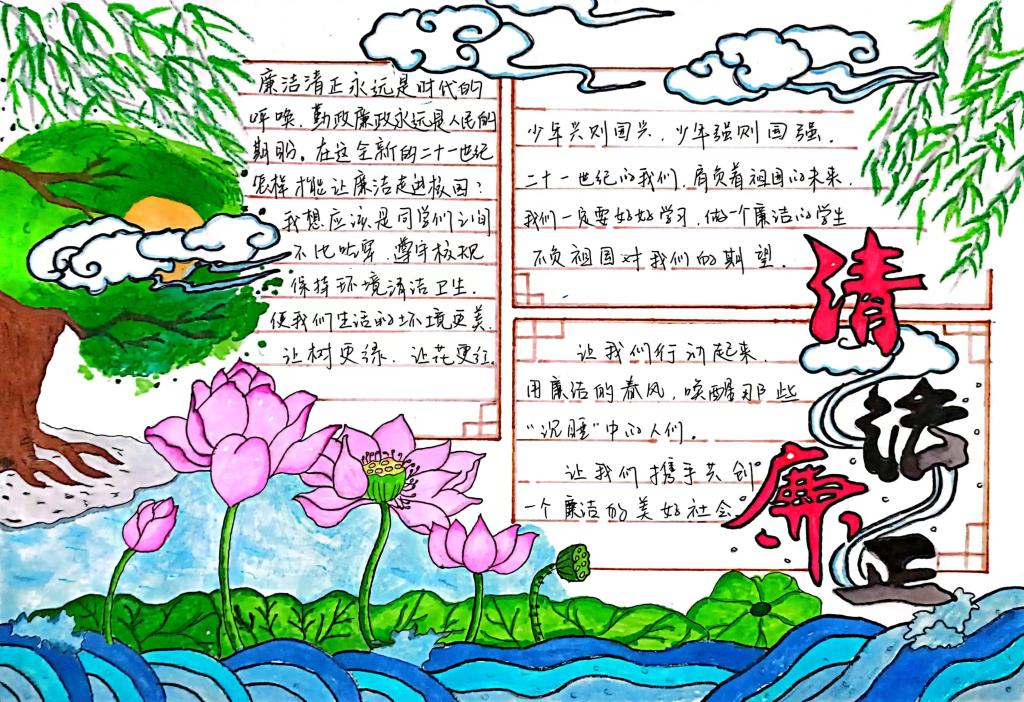 廉洁清正永远是时代的
呼唤，勤政廉政永远是人民的
期盼。在这全新的二十一世纪
怎样才能让廉洁走进校园？
我想应该是同学们之间
不比吃穿，遵守校规
保持环境清洁卫生.
使我们生活的环境更美.
让树更绿，让花更红.
少年兴则国兴，少年强则国强.
二十一世纪的我们，肩负着祖国的未来.
我们一定要好好学习，做一个廉洁的学生
不负祖国对我们的期望.
让我们行动起来.
用廉洁的春风，唤醒那些
“沉睡”中的人们.
让我们携手共创
一个廉洁的美好社会.
清
洁
廉
正